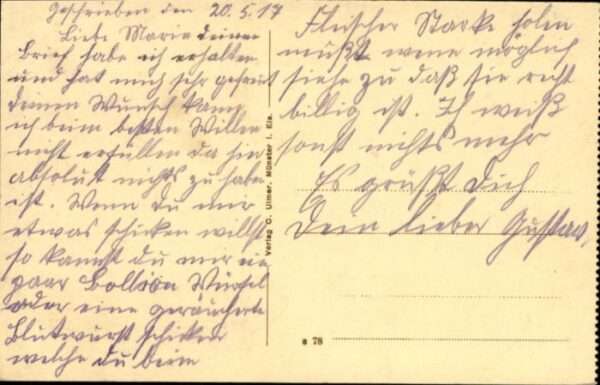 Geschrieben den 20.5.17
Liebe Marie deinen
Brief habe ich erhalten
und hat mich sehr gefreut
deinen Wunsch kann
ich beim besten Willen
nicht erfüllen da hir
absolut nichts zu habe
ist. Wenn du mir
etwas schicken willst
so kannst du mir ein
paar Bollion Würfel
oder eine geräucherte
Blutwurst schicken
welche du beim
Fleischer Starke holen
mußt wenn möglich
siehe zu daß sie recht
billig ist. Ich weiß
sonst nichts mehr
Es grüßt Dich
Dein lieber Gustav,
Verlag C. Ulmer, Münster i. Els.
78